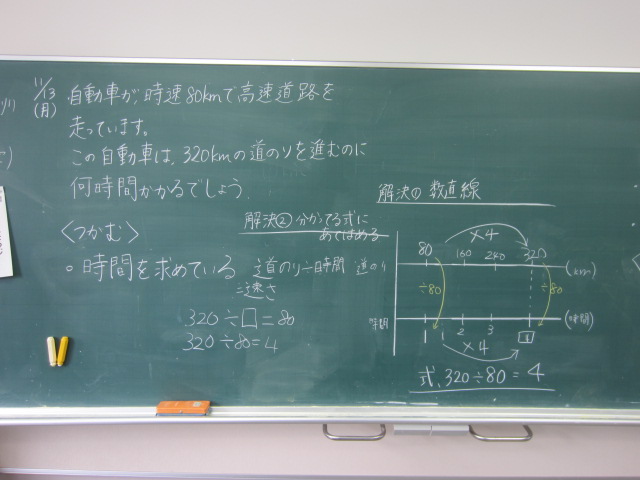 11/13
(月)
自動車が、時速80kmで高速道路を
走っています。
この自動車は、320kmの道のりを進むのに
何時間かかるでしょう。
〈つかむ〉
○時間を求めている
解決②分かってる式に
あてはめる
道のり÷時間
=速さ
320÷□=80
320÷80=4
解決① 数直線
×4
80 160 240 320
道のり (km)
÷80 ÷80
時間 (時間)
1 2 3 4
×4
式、320÷80=4